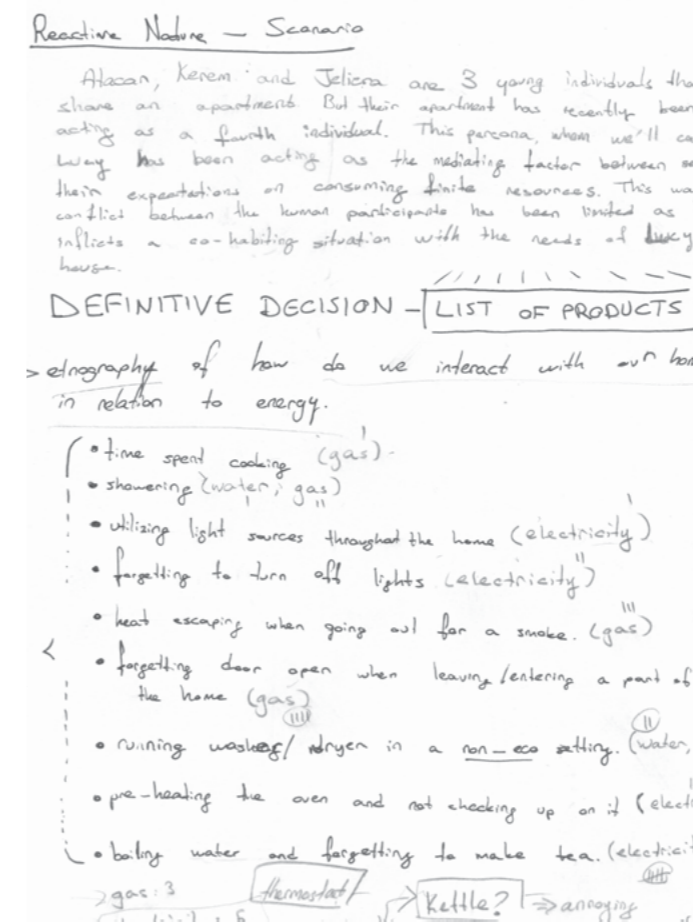 Reactive Nature – Scenario
Atacan, Kerem and Jeliena are 3 young individuals tha
share an apartment But their apartment has recently been
acting as a fourth individual. This persona, whom we'll ca
Lucy has been acting as the mediating factor between
their expectations on consuming finite resources. This wa
conflict between the human participants has been limited as
inflicts a co-habiting situation with the needs of Lucy
house.
DEFINITIVE DECISION – LIST OF PRODUCTS
> etnography of how do we interact with our hom
in relation to energy.
• time spent cooking (gas)
• showering (water, gas)
• utilizing light sources throughout the home (electricity)
• forgetting to turn off lights (electricity)
• heat escaping when going out for a smoke. (gas)
• forgetting door open when leaving/entering a part of
the home (gas)
• running washer/dryer in a non-eco setting. (water,
• pre-heating the oven and not checking up on it (elect
• boiling water and forgetting to make tea. (electricit
> gas: 3 thermostat Kettle? ⇒ annoying